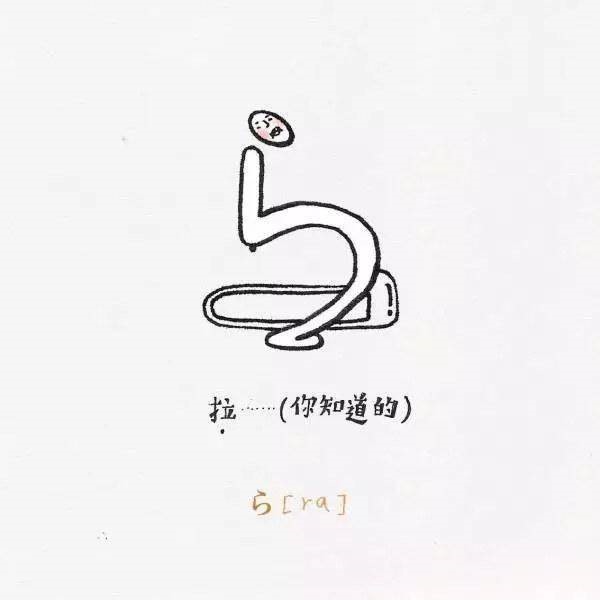 拉……(你知道的)
ら[ra]